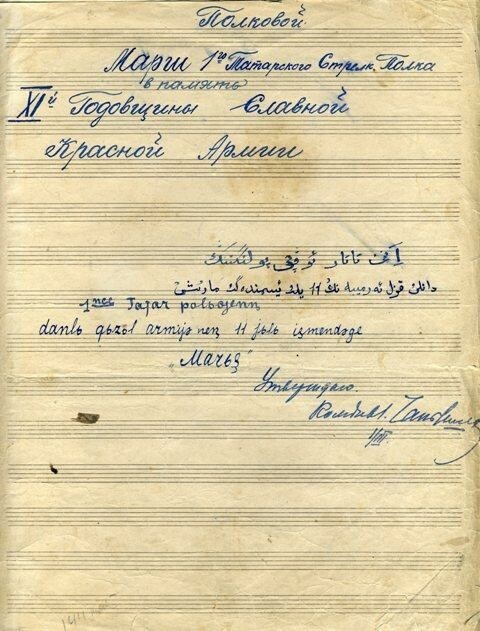 Полковой
Марш 1го Татарского Стрелк. Полка
в память
XIй Годовщины Славной
Красной Армии
تاتار ئوقچی پولكىنىڭ
دانلی قزل ئەرمییە نڭ 11 یللق ئیسمندەگی مارشی
1nce Tatar polbojenn
danlь qьzьl armijə neꞑ 11 jьlь ismendəge
„Marş“
Утверждаю